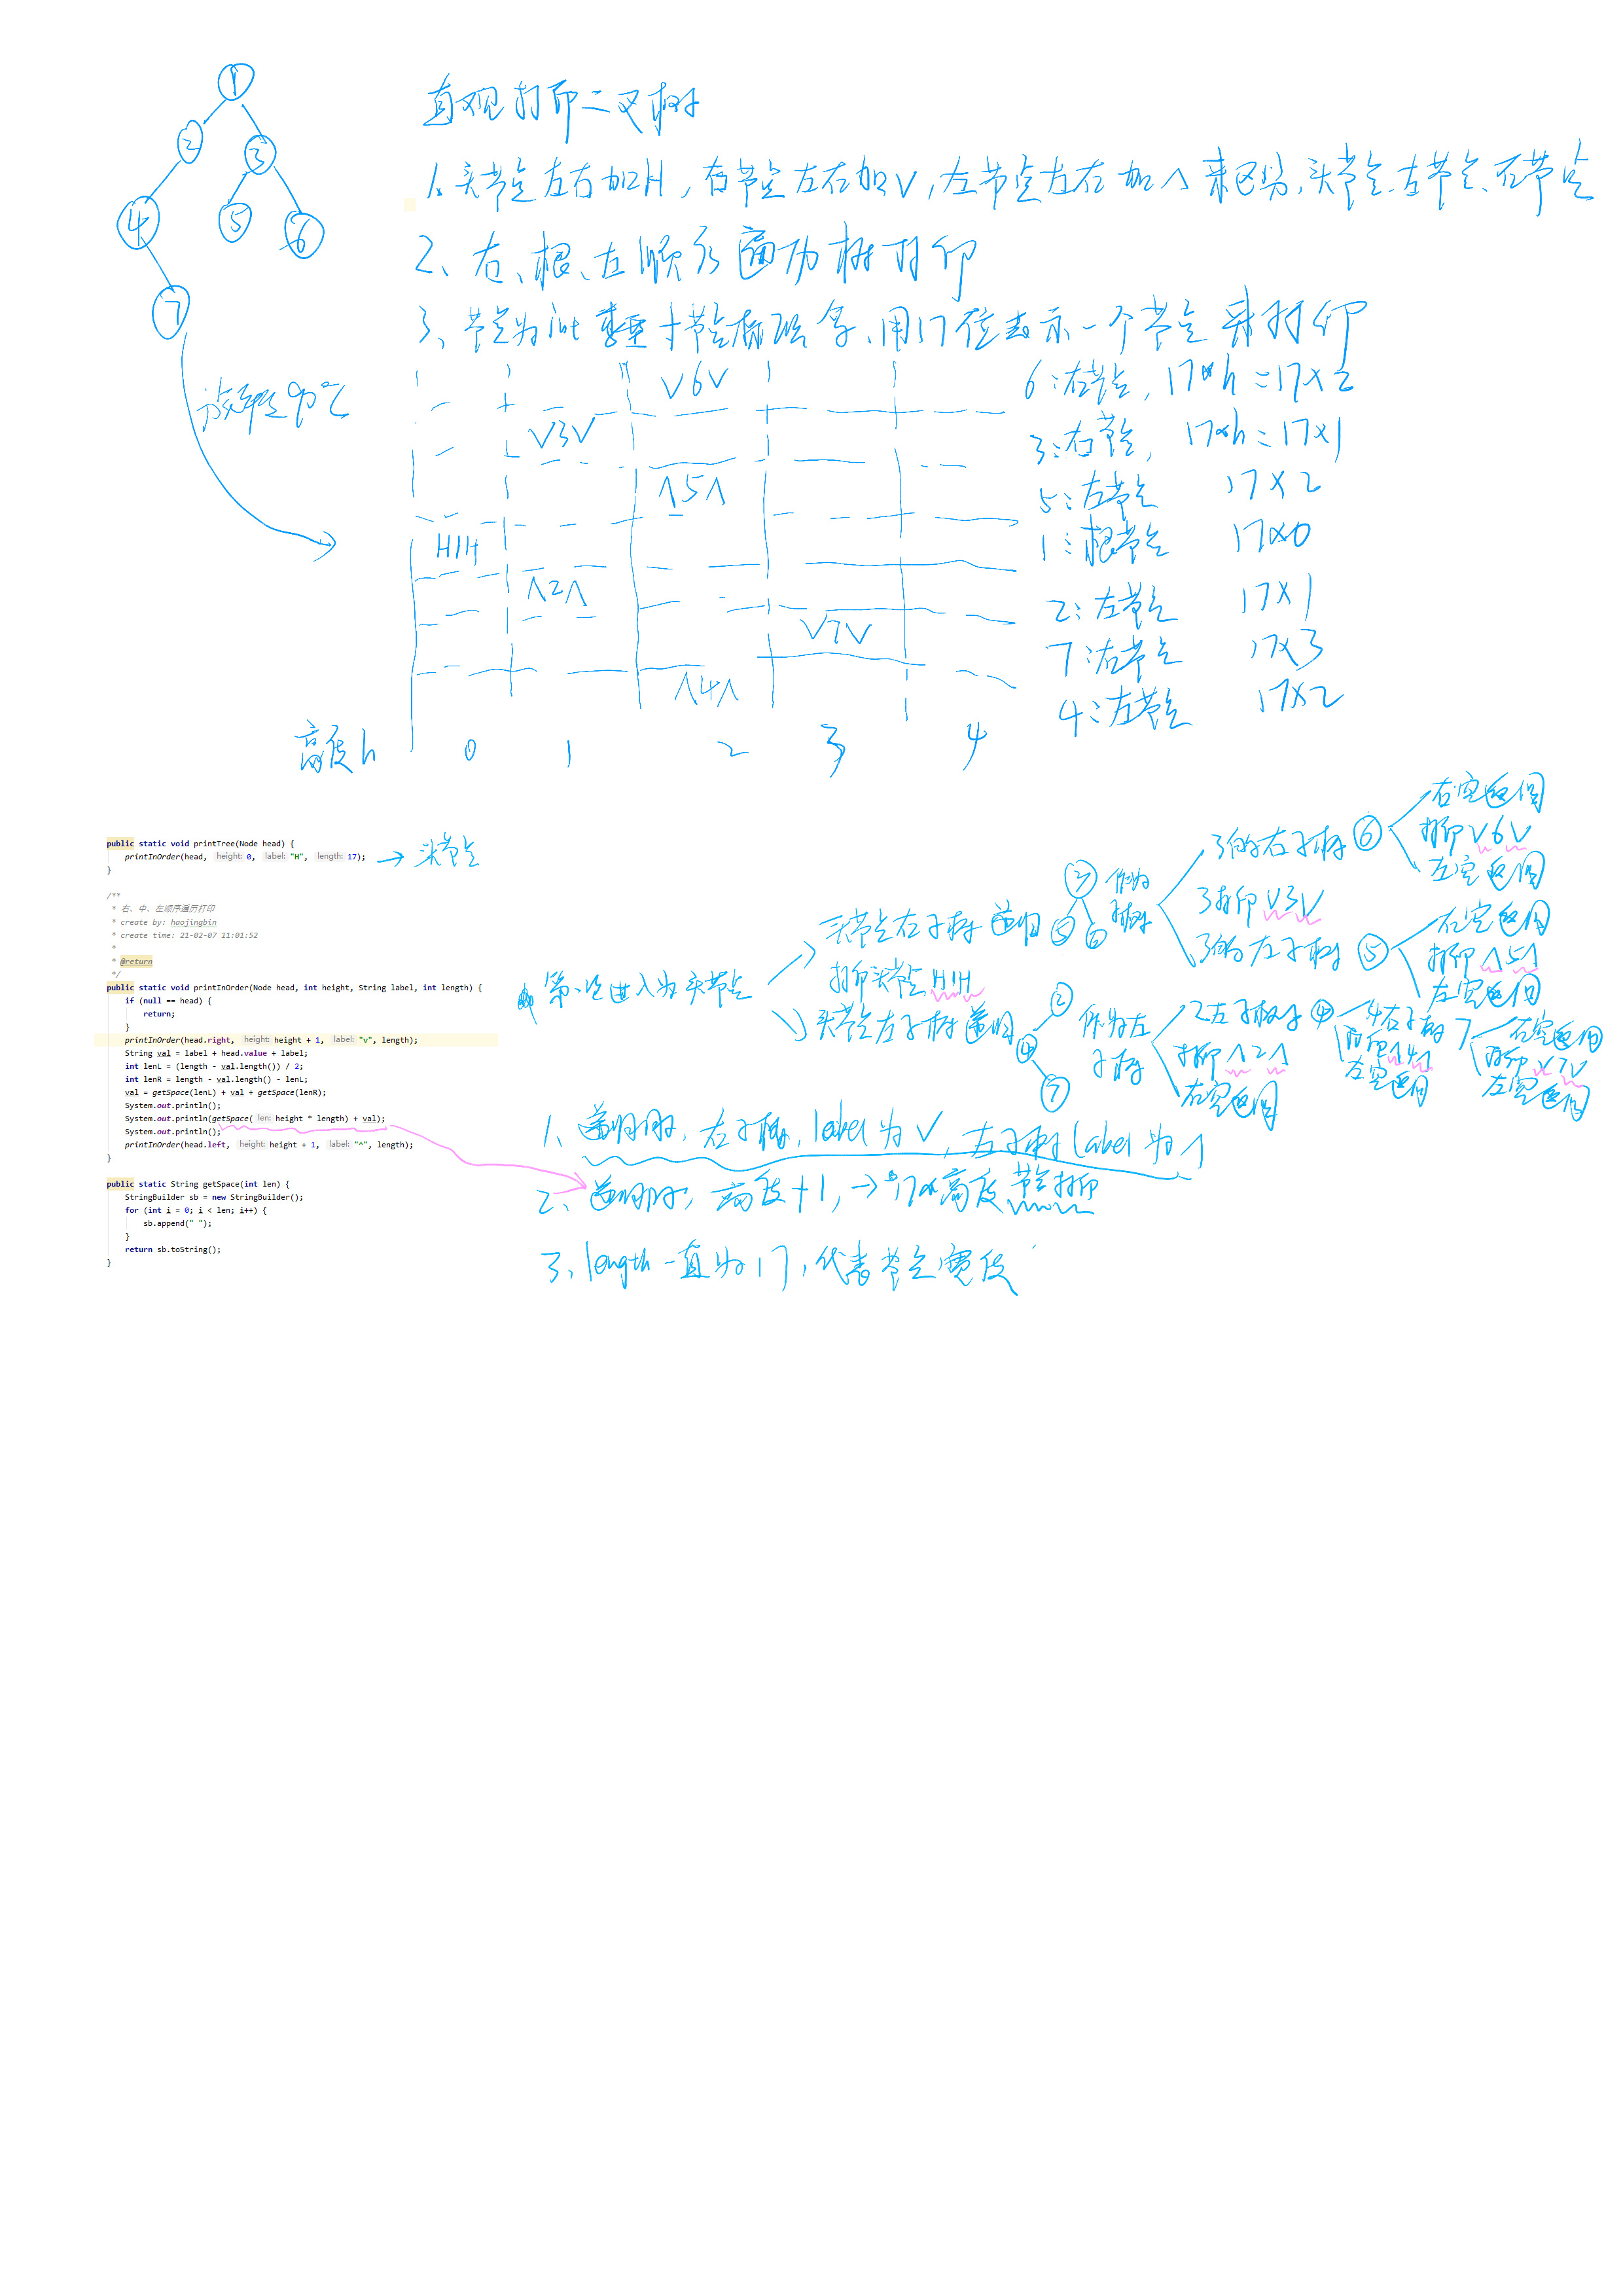 1
2
3
4
5
6
7
直观打印二叉树
1.头节点左右加H,右节点左右加V,左节点左右加∧来区别,头节点、左节点、右节点
2、右、根、左顺序遍历树打印
3、节点为int类型+节点标识符、用17位表示一个节点来打印
旋转90℃
V6V
V3V
∧5∧
H1H
∧2∧
V7V
∧4∧
高度h 0 1 2 3 4
6:右节点, 17*h=17×2
3:右节点, 17*h=17×1
5:左节点 17×2
1:根节点 17×0
2:左节点 17×1
7:右节点 17×3
4:左节点 17×2
public static void printTree(Node head) {
printInOrder(head, height: 0, label: "H", length: 17); → 头节点
}
/**
* 右、中、左顺序遍历打印
* create by: haojingbin
* create time: 21-02-07 11:01:52
*
* @return
*/
public static void printInOrder(Node head, int height, String label, int length) {
if (null == head) {
return;
}
printInOrder(head.right, height: height + 1, label: "v", length);
String val = label + head.value + label;
int lenL = (length - val.length()) / 2;
int lenR = length - val.length() - lenL;
val = getSpace(lenL) + val + getSpace(lenR);
System.out.println();
System.out.println(getSpace( len: height * length) + val);
System.out.println();
printInOrder(head.left, height: height + 1, label: "^", length);
}
public static String getSpace(int len) {
StringBuilder sb = new StringBuilder();
for (int i = 0; i < len; i++) {
sb.append(" ");
}
return sb.toString();
}
第一次进入为头节点
头节点右子树递归
3
5 6
作为
子树
打印头节点H1H
头节点左子树递归
2
4
7
作为左
子树
3的右子树 6
右空返回
打印V6V
左空返回
3打印V3V
3的左子树 5
右空返回
打印∧5∧
左空返回
2左子树 4
4右子树 7
右空返回
打印V7V
左空返回
打印∧4∧
左空返回
打印∧2∧
右空返回
1、递归时,右子树,label为V,左子树label为∧
2、递归时,高度+1,→17*高度 节点打印
3、length一直为17,代表节点宽度